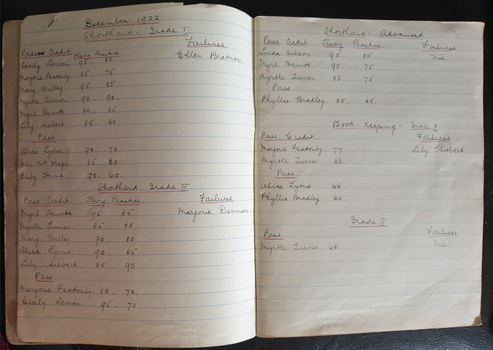 December 1922
Shorthand - Grade I
Pass Credit Theory Practice Failures
Cecily Levien 95 80 Ellen Bratner
Marjorie Peatorly 85 75
Mary Willey 95 85
Myrtle Turner 90 90
Myrl Hewitt 80 85
Lily Liebert 85 80
Pass
Alice Lyons 90 70
85 60
90 60
Shorthand Grade II
Pass Credit Theory Practice Failures
Myrl Hewitt 95 85 Marjorie
Myrtle Turner 85 85
Mary Willey 90 80
Alice Lyons 90 85
Lily Liebert 85 90
Pass
Marjorie 80 70
Cecily Levien 95 70
Shorthand - Advanced
Pass Credit Theory Practice Failures
Linda Gibson 95 85 Nil
Myrl Hewitt 95 75
Myrtle Turner 85 75
Pass
Phyllis Bradley 85 65
Book-Keeping - Grade I
Pass Credit Failures
Marjorie 77 Lily Liebert
Myrtle Turner 80
Pass
Alice Lyons 66
Phyllis Bradley 60
Grade II
Pass Failures
Myrtle Turner 68 Nil